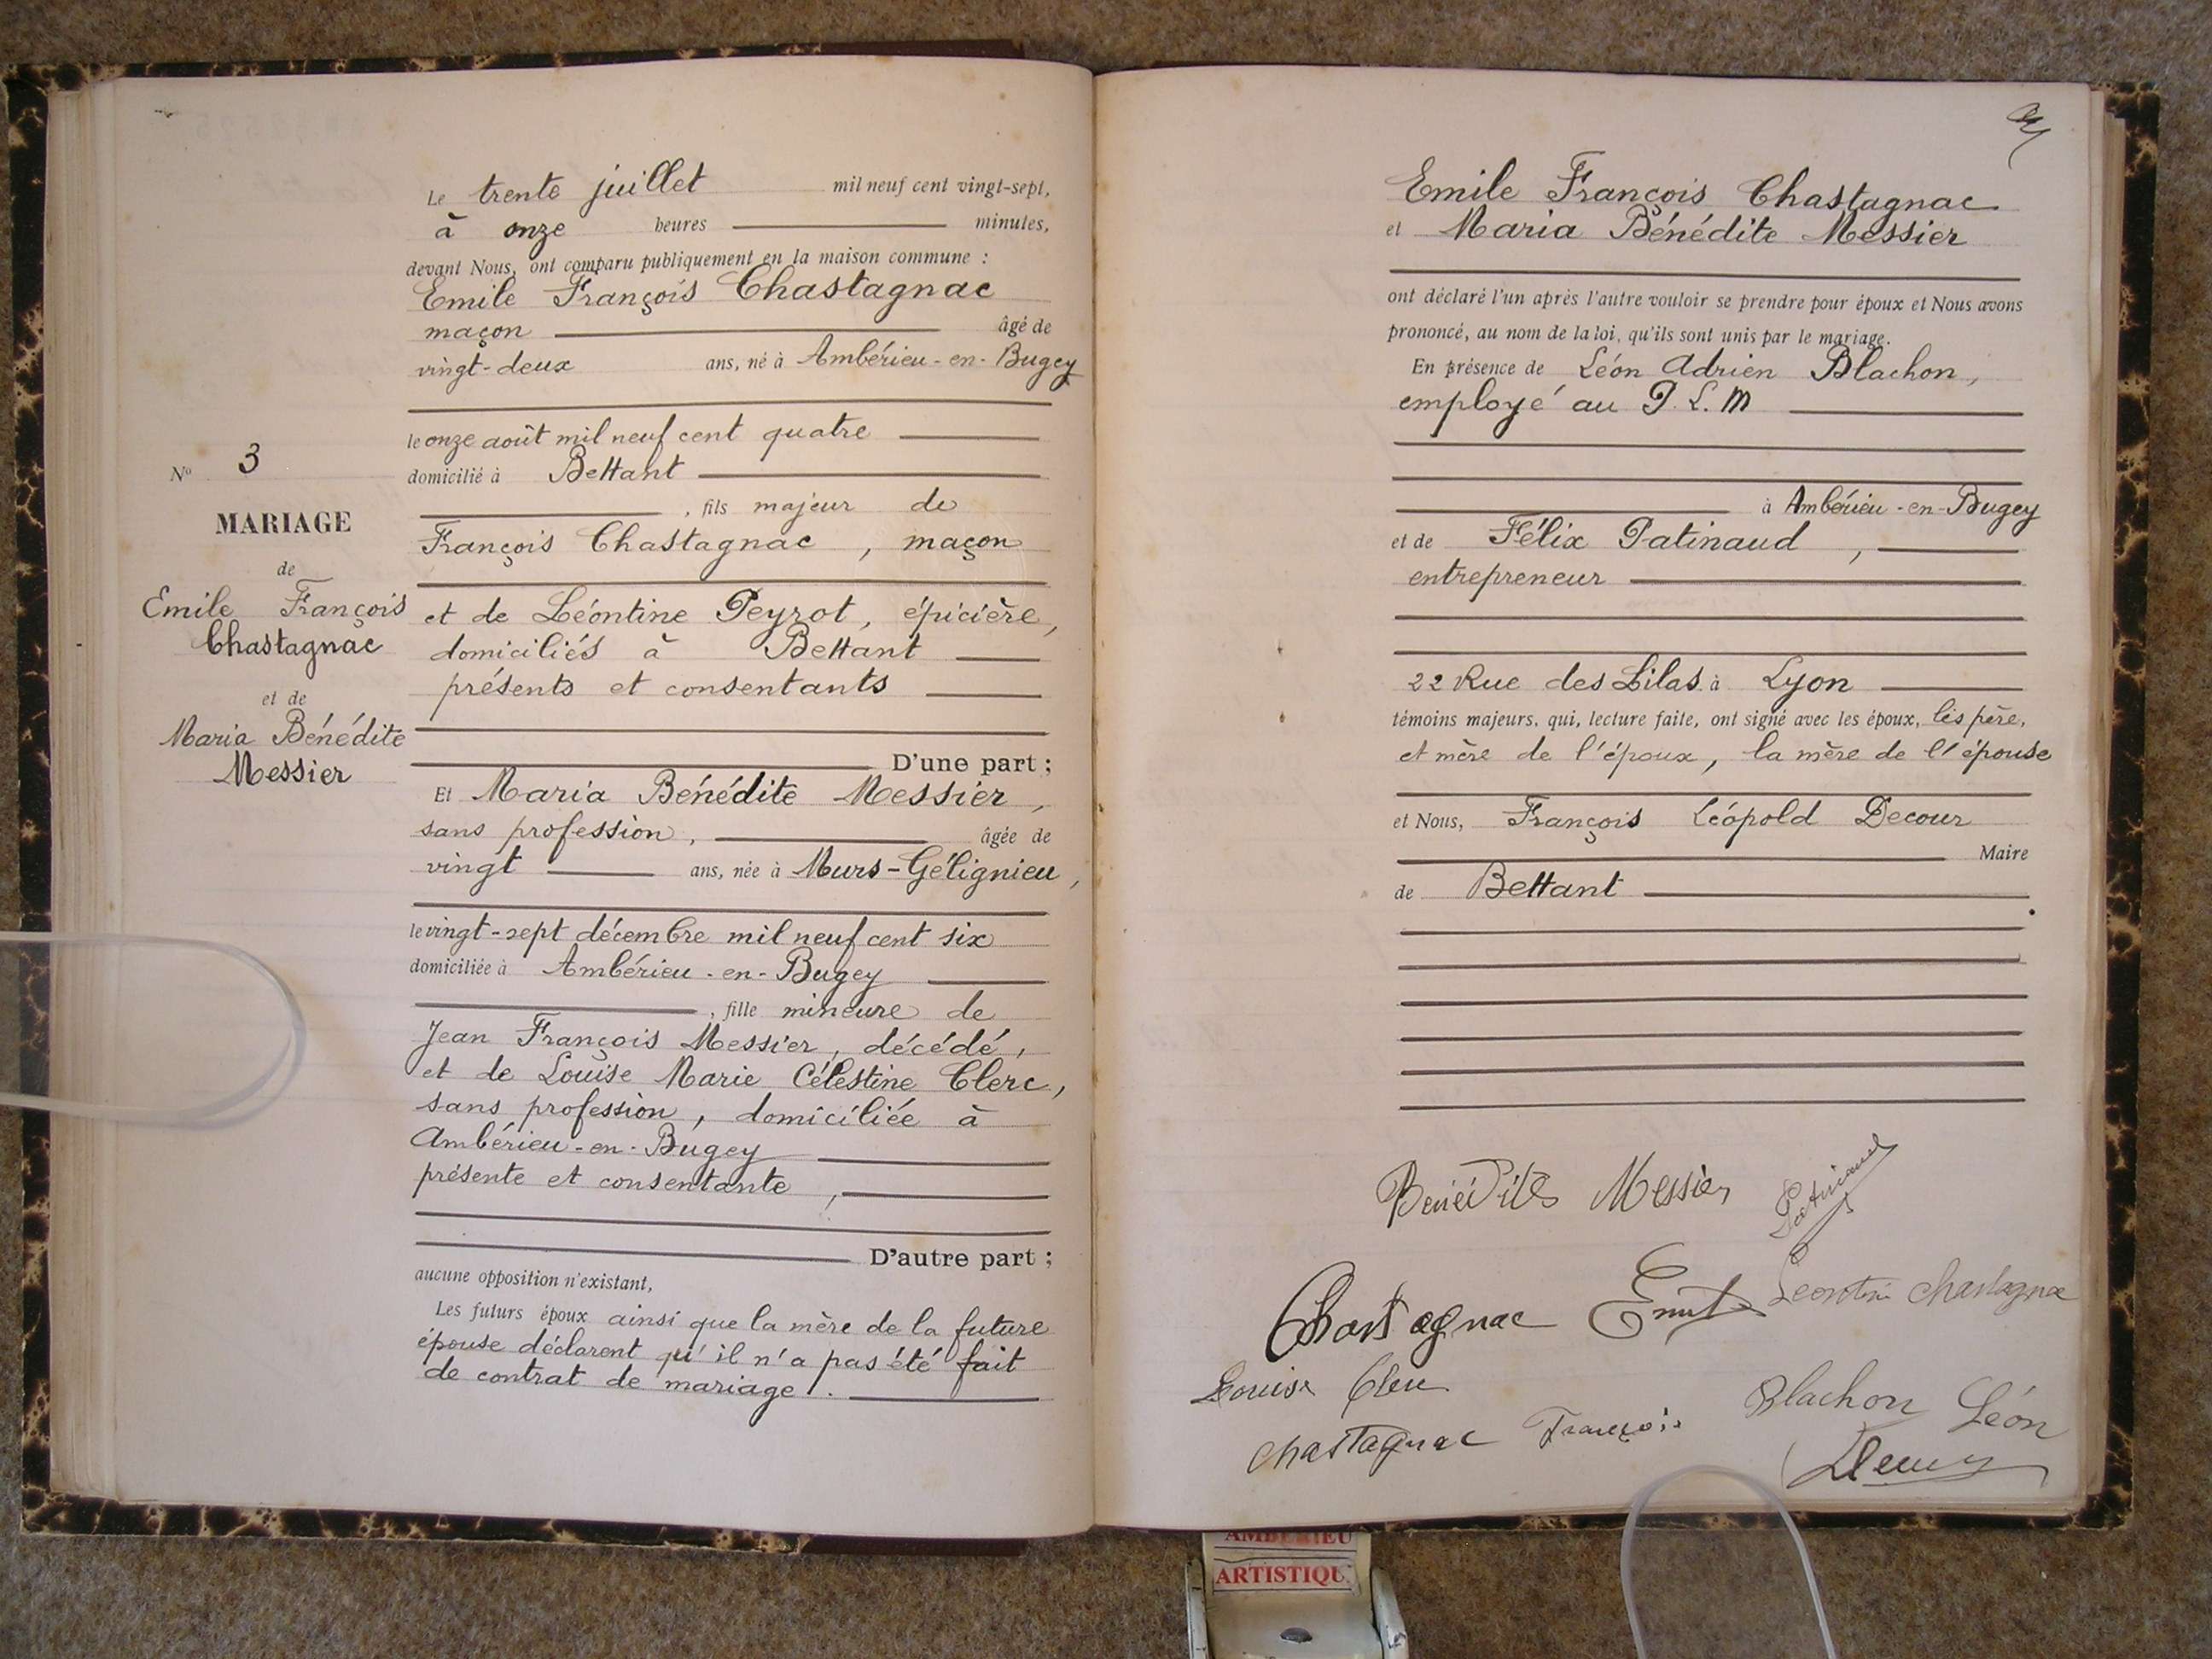 N° 3
MARIAGE
de
Emile François
Chastagnac
et de
Maria Bénédite
Messier
Le trente juillet mil neuf cent vingt-sept,
à onze heures minutes,
devant Nous, ont comparu publiquement en la maison commune :
Emile François Chastagnac
maçon âgé de
vingt-deux ans, né à Ambérieu-en-Bugey
le onze août mil neuf cent quatre
domicilié à Bettant
, fils majeur de
François Chastagnac, maçon
et de Léontine Peyrot, épicière,
domiciliés à Bettant
présents et consentants
D'une part ;
Et Maria Bénédite Messier,
sans profession, âgée de
vingt ans, née à Murs-Gélignieu,
le vingt-sept décembre mil neuf cent six
domiciliée à Ambérieu-en-Bugey
, fille mineure de
Jean François Messier, décédé,
et de Louise Marie Célestine Clerc,
sans profession, domiciliée à
Ambérieu-en-Bugey
présente et consentante,
D'autre part ;
aucune opposition n'existant,
Les futurs époux ainsi que la mère de la future
épouse déclarent qu'il n'a pas été fait
de contrat de mariage.
Emile François Chastagnac
et Maria Bénédite Messier
ont déclaré l'un après l'autre vouloir se prendre pour époux et Nous avons
prononcé, au nom de la loi, qu'ils sont unis par le mariage.
En présence de Léon Adrien Blachon,
employé au P.L.M
à Ambérieu-en-Bugey
et de Félix Patinaud,
entrepreneur
22 Rue des Lilas à Lyon
témoins majeurs, qui, lecture faite, ont signé avec les époux, les père,
et mère de l'époux, la mère de l'épouse
et Nous, François Léopold Decour
Maire
de Bettant
Bénédite Messier
Patinaud
Chastagnac Emile
Leontine Chastagnac
Louise Clerc
Chastagnac François
Blachon Léon
AMBERIEU
ARTISTIQU